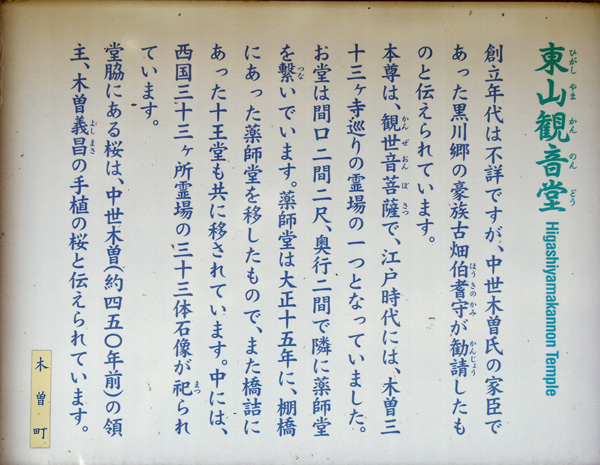 東山観音堂
Higashiyamakannon Temple
創立年代は不詳ですが、中世木曽氏の家臣で
あった黒川郷の豪族古畑伯耆守が勧請したも
のと伝えられています。
本尊は、観世音菩薩で、江戸時代には、木曽三
十三ヶ寺巡りの霊場の一つとなっていました。
お堂は間口二間二尺、奥行二間で隣に薬師堂
を繋いでいます。薬師堂は大正十五年に、棚橋
にあった薬師堂を移したもので、また橋詰に
あった十王堂も共に移されています。中には、
西国三十三ヶ所霊場の三十三体石像が祀られ
ています。
堂脇にある桜は、中世木曽(約四五〇年前)の領
主、木曽義昌の手植の桜と伝えられています。
木曽町